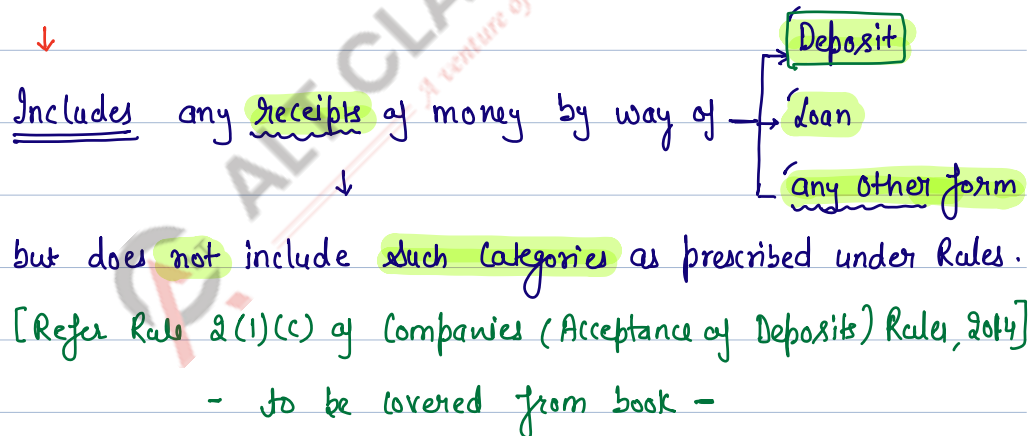 ↓ Deposit
Includes any receipts of money by way of → Loan
↓ any other form
but does not include such Categories as prescribed under Rules.
[Refer Rule 2(1)(c) of Companies (Acceptance of Deposits) Rules, 2014]
- to be covered from book -
ALT CLA
A venture of